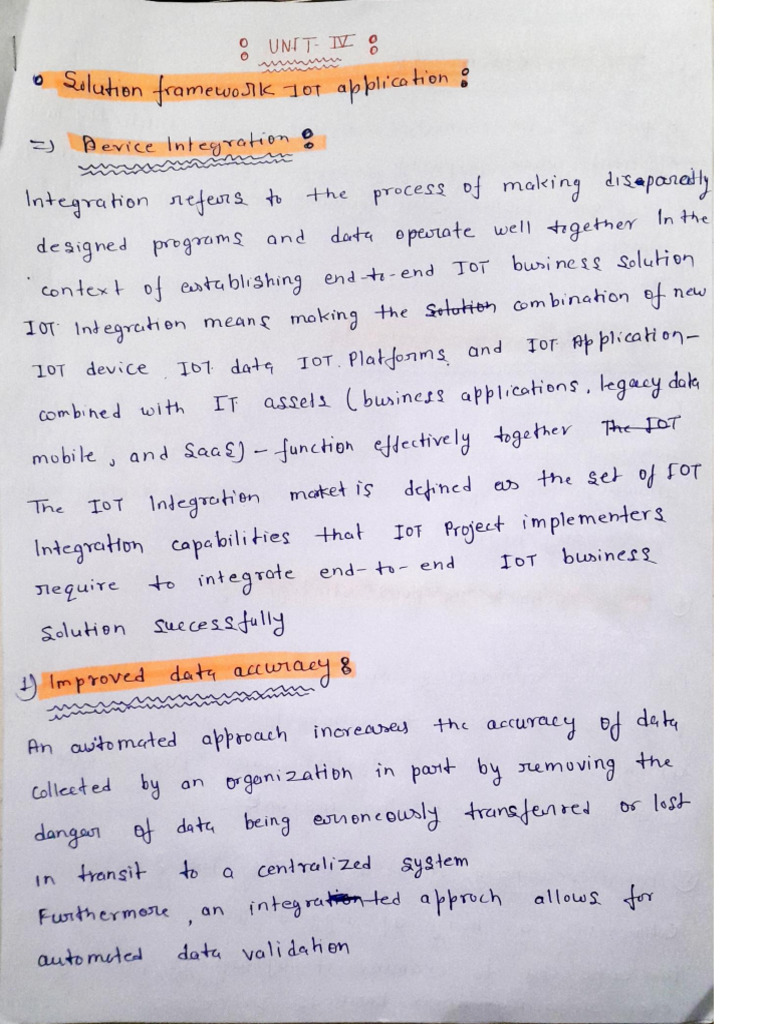 : UNIT-IV :
• Solution framework IOT application :
=> Device Integration :
Integration refers to the process of making disparatly
designed programs and data operate well together In the
context of establishing end-to-end IOT business Solution
IOT Integration means making the Solution combination of new
IOT device, IOT data IOT Platforms, and IOT Application-
combined with IT assets (business applications, legacy data
mobile, and SaaS) - function effectively together The IOT
The IOT Integration maket is defined as the set of IOT
Integration capabilities that IOT Project implementers
require to integrate end-to-end IOT business
Solution successfully
1) Improved data accuracy :
An automated approach increases the accuracy of data
collected by an organization in part by removing the
danger of data being erroneously transferred or lost
in transit to a centralized system
Furthermore, an integrated approch allows for
automated data validation